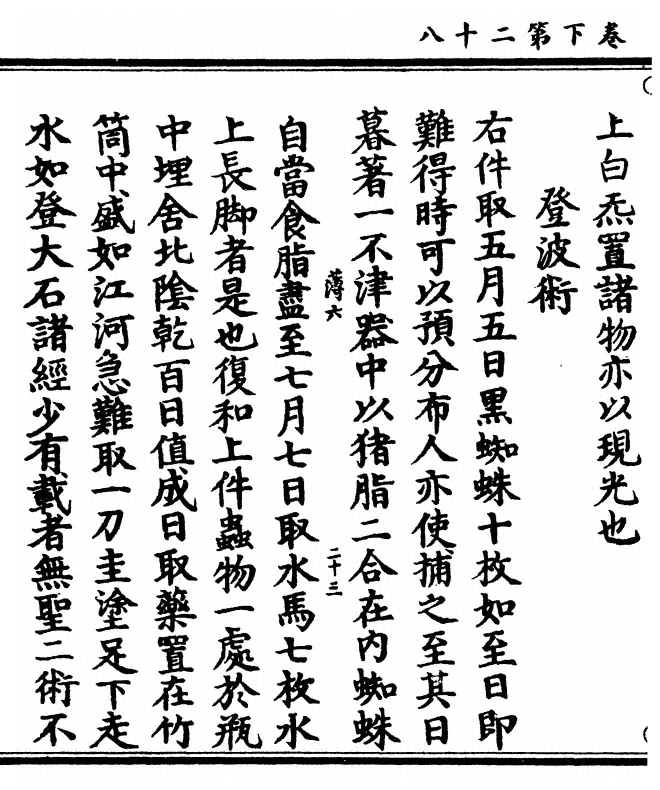 卷下第二十八
上白炁置諸物亦以現光也
登波術
右件取五月五日黑蜘蛛十枚如至日即
難得時可以預分布人亦使捕之至其日
暮著一不津器中以猪脂二合在内蜘蛛
薄六
二十三
自當食脂盡至七月七日取水馬七枚水
上長脚者是也復和上件蟲物一處於瓶
中埋舍北陰乾百日值成日取藥置在竹
筒中盛如江河急難取一刀圭塗足下走
水如登大石諸經少有載者無聖二術不